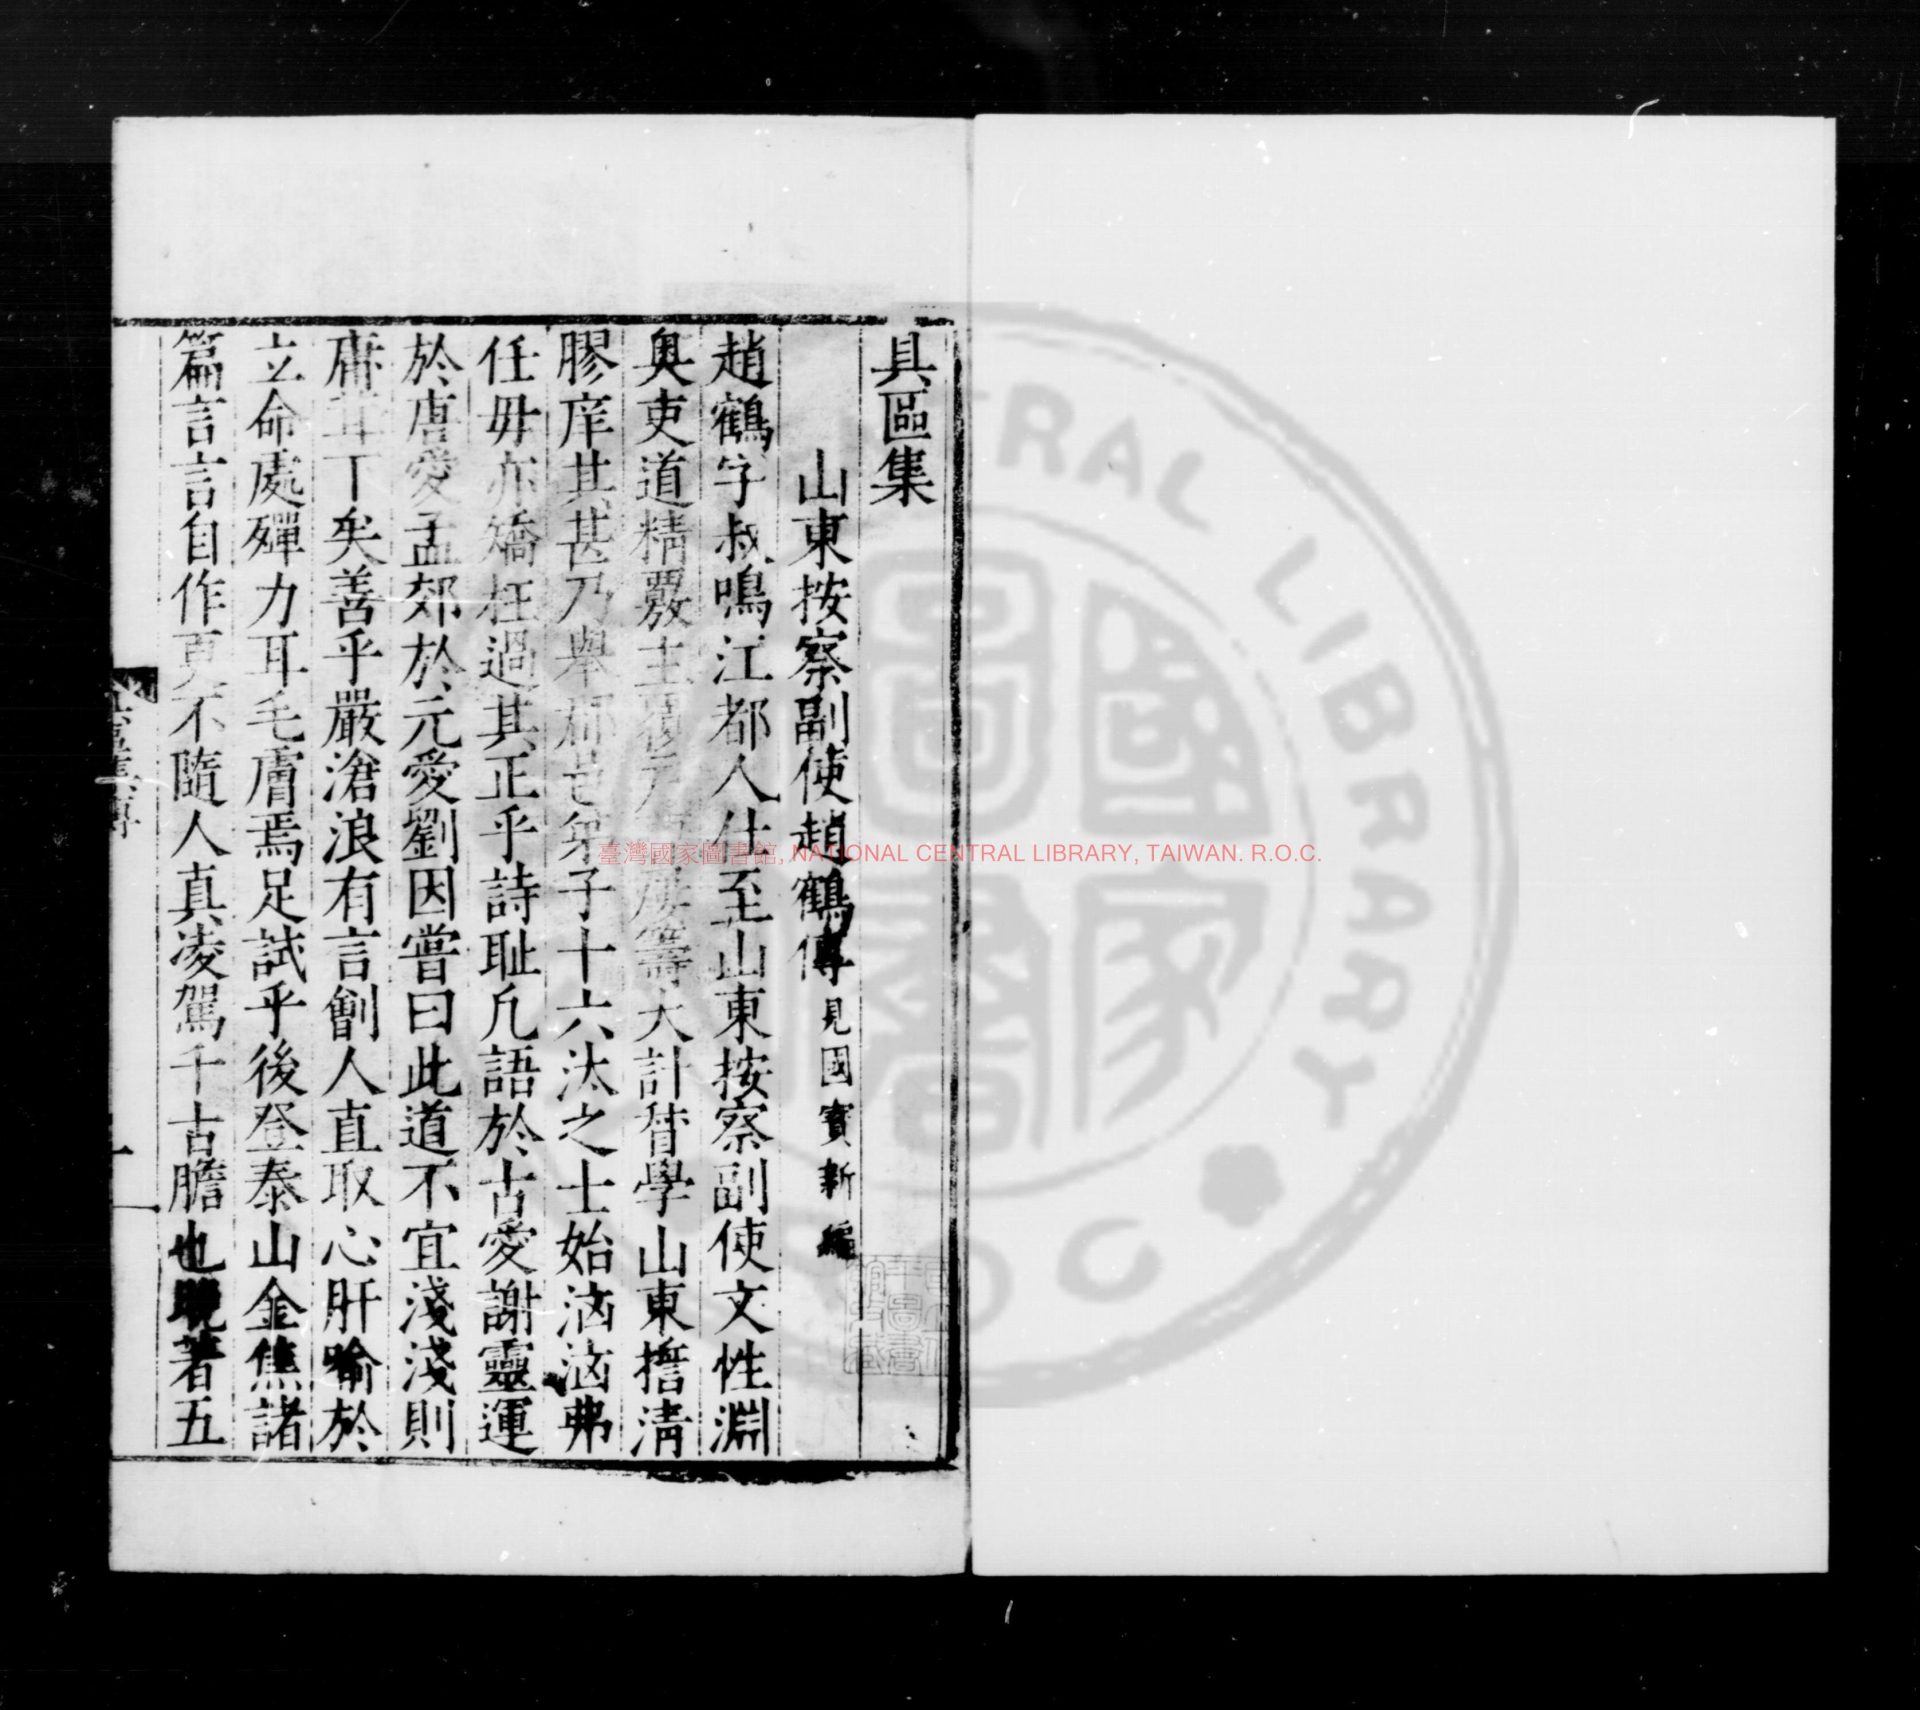 具區集
山東按察副使趙鶴傳見國寶新編
趙鶴字叔鳴江都人仕至山東按察副使文性淵
奧吏道精覈主 屢籌大計督學山東擔淸
膠庠其甚乃舉 弟子十六汰之士始洶洶弗
任毋亦矯枉過其正乎詩耻凡語於古愛謝靈運
於唐愛孟郊於元愛劉因嘗曰此道不宜淺淺則
庸茸下矣善乎嚴滄浪有言劊人直取心肝喻於
立命處殫力耳毛膚焉足試乎後登泰山金焦諸
篇言言自作更不隨人真凌駕千古膽也晚著五
臺灣國家圖書館, NATIONAL CENTRAL LIBRARY, TAIWAN. R.O.C.